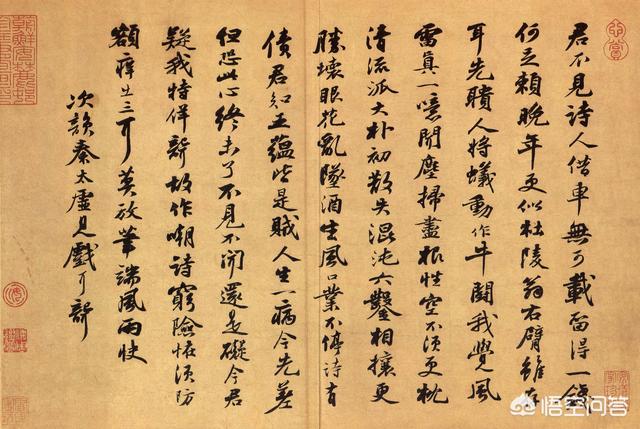 君不見詩人借車無可載留得一錢
何足賴晚年更似杜陵翁右臂雖存
耳先聵人將蟻動作牛鬪我覺風
雷真一噫聞塵掃盡根性空不須更枕
清流派大朴初散失混沌六鑿相攘更
勝壞眼花亂墜酒生風口業不停詩有
債君知五蘊皆是賊人生一病今先差
但恐此心終未了不見不聞還是礙今君
疑我特佯聾故作嘲詩窮險怪須防
額痒出三耳莫放筆端風雨快
次韻秦太虛見戲耳聾
悟空问答